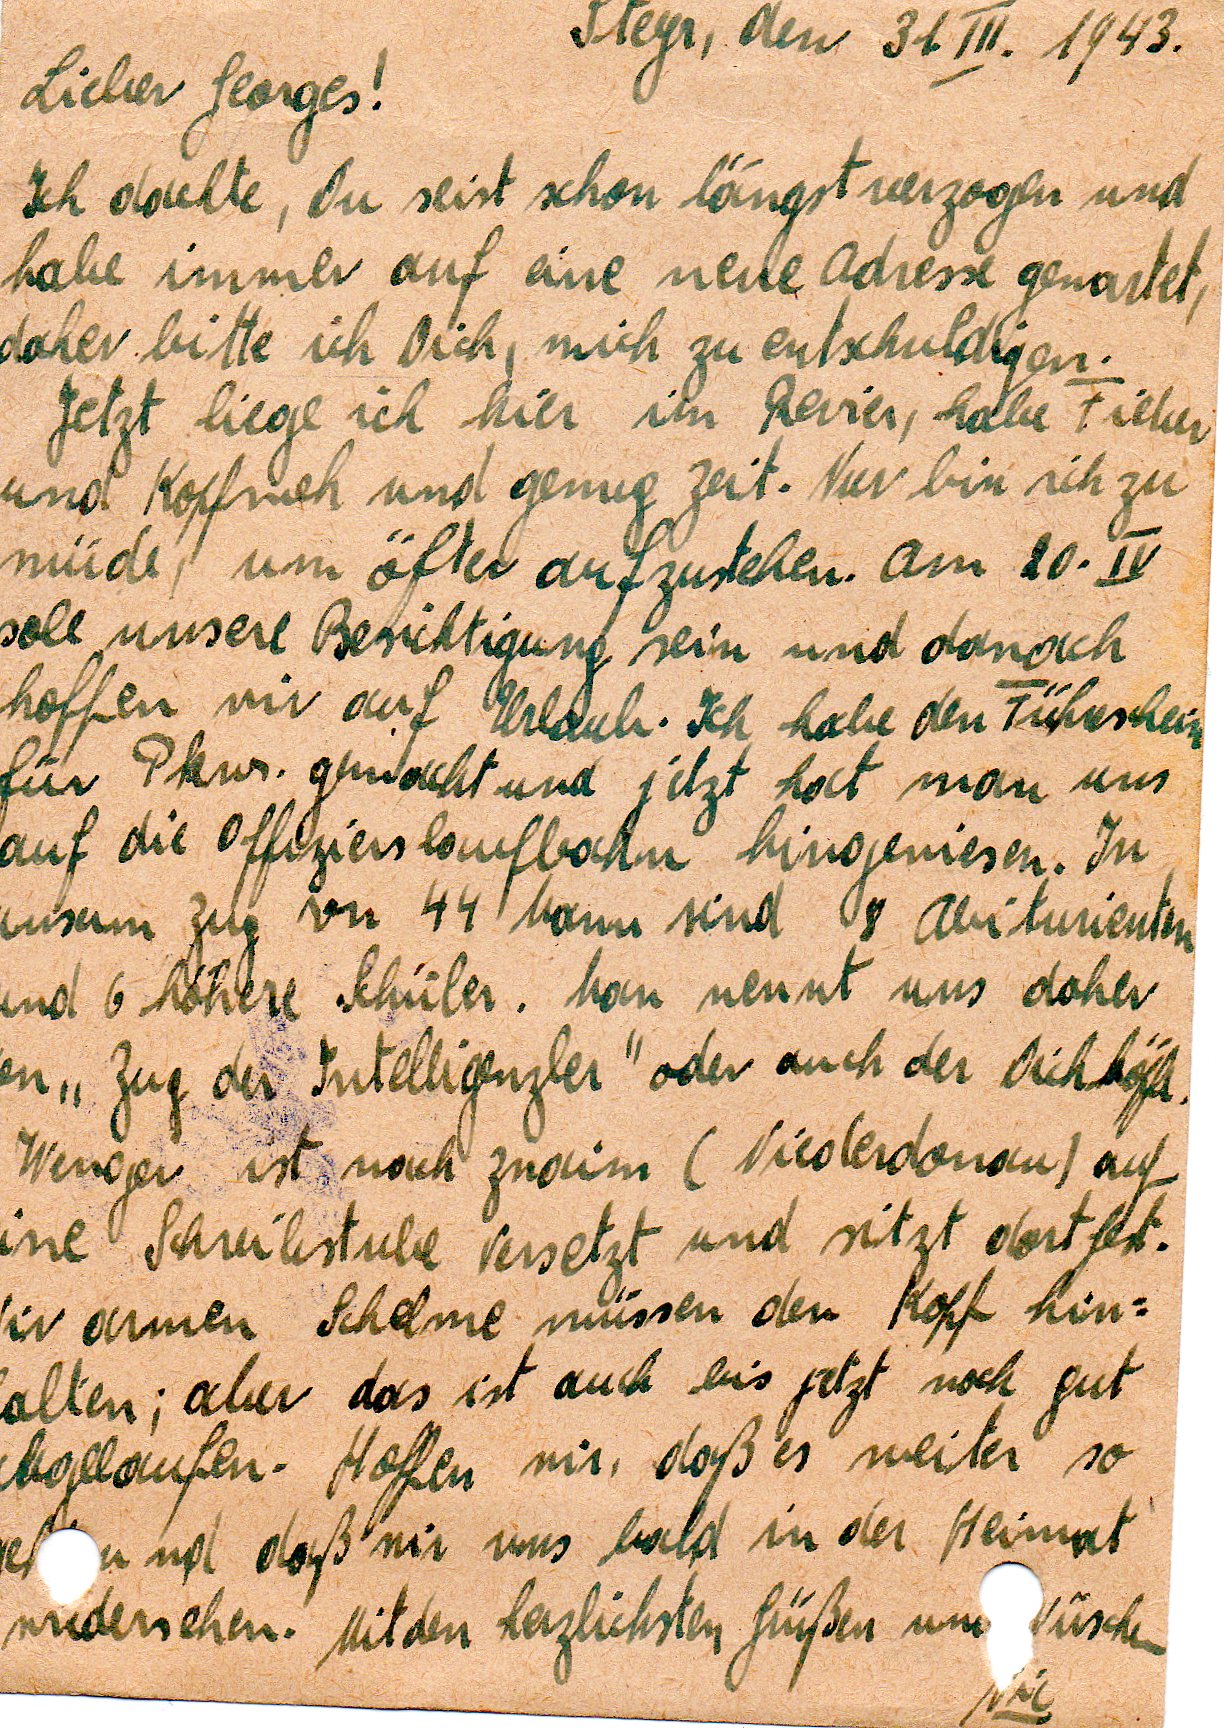 Steyr, den 31. III. 1943.
Lieber Georges!
Ich dachte, Du seist schon längst verzogen und
habe immer auf eine neue Adresse gewartet,
daher bitte ich Dich, mich zu entschuldigen.
Jetzt liege ich hier im Revier, habe Fieber
und Kopfweh und genug Zeit. Nur bin ich zu
müde, um öfter aufzustehen. Am 20. IV
soll unsere Besichtigung sein und danach
hoffen wir auf Urlaub. Ich habe den Führschein
für Pkws. gemacht und jetzt hat man uns
auf die Offizierslaufbahn hingewiesen. In
unserm Zug von 44 Mann sind 8 Abiturienten
und 6 höhere Schüler. Man nennt uns daher
en „Zug der Intelligenzler" oder auch der
Wenger ist nach Znaim (Niederdonau) auf
ine Schreibstube versetzt und sitzt dort fest.
Wir armen Schelme müssen den Kopf hin=
halten; aber das ist auch bis jetzt noch gut
abgelaufen. Hoffen wir, daß es weiter so
und daß wir uns bald in der Heimat
wiedersehen. Mit den herzlichsten Grüßen und